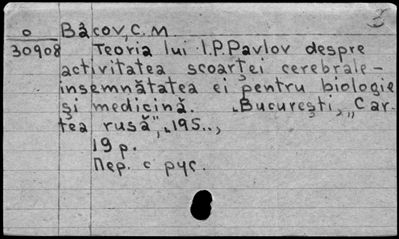 3
o Bâcov, C. M
30908 Teoria lui I.P.Pavlov despre
activitatea scoarței cerebrale-
insemnătatea ei pentru biologie
și medicină. „București, „Car-
tea rusă", „195..,
19 p.
Пер. с рус.